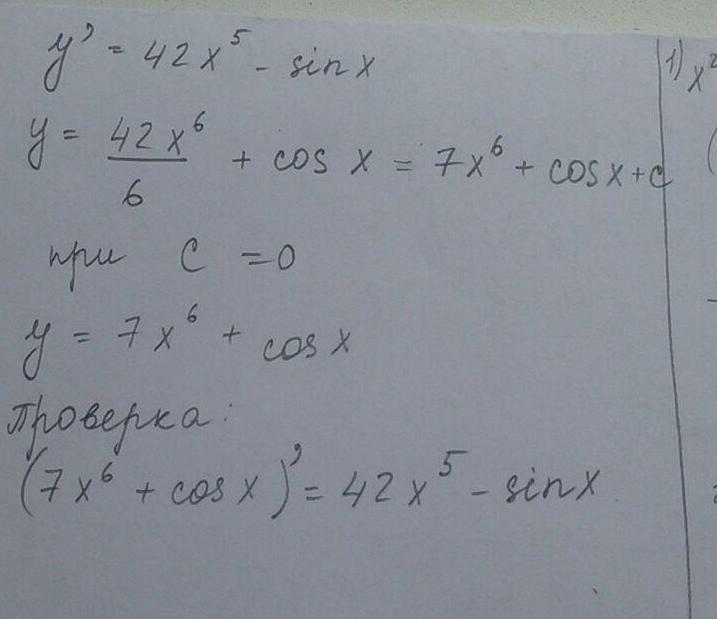 y' = 42x⁵ - sin x
y = 42x⁶/6 + cos x = 7x⁶ + cos x + c
при C = 0
y = 7x⁶ + cos x
Проверка:
(7x⁶ + cos x)' = 42x⁵ - sin x
1) x²
(